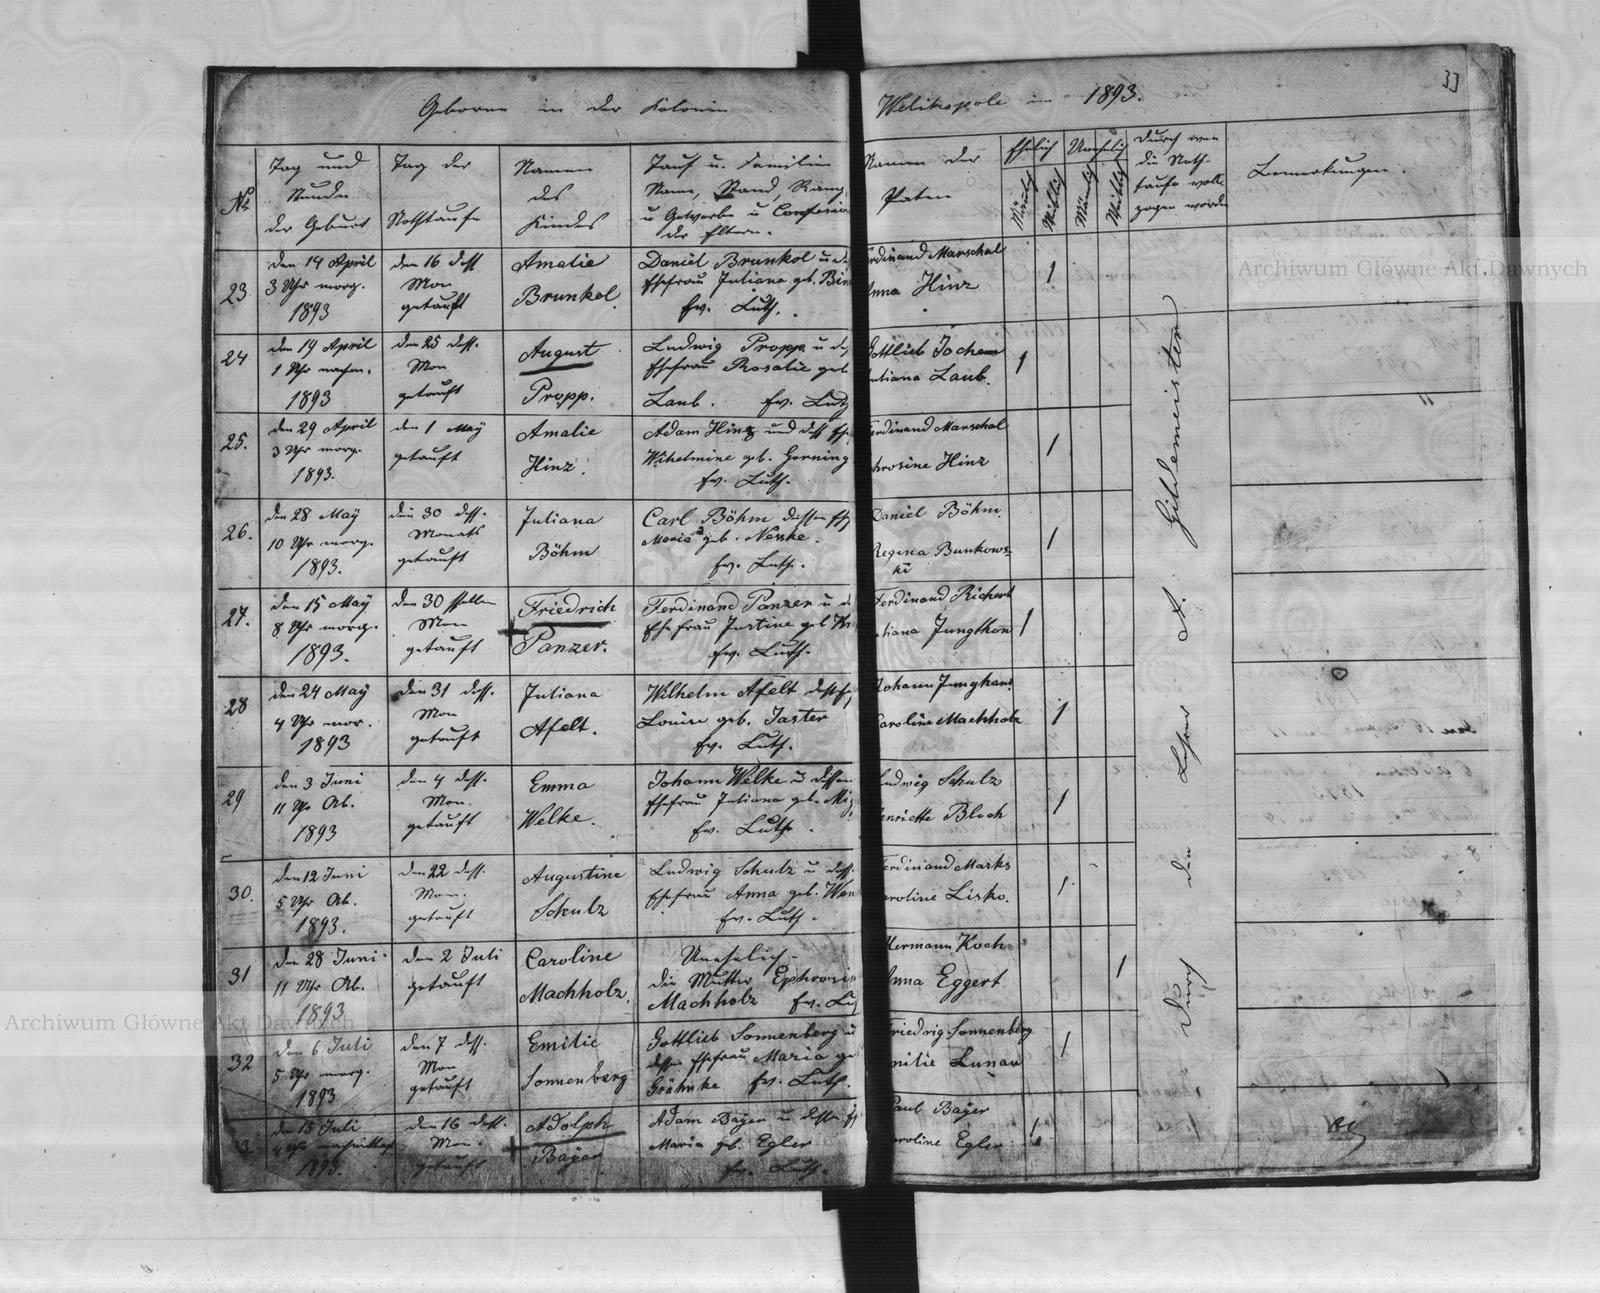 33
Geborne in der Kolonie Welikopole im 1893.
№
Tag und
Stunde
der Geburt
Tag der
Nothtaufe
Namen
des
Kindes
Tauf u. Familien
Name, Stand, Rang,
u Gewerbe u Confession
der Eltern.
Namen der
Paten
Ehelich
Unehelich
Mänlich
Weiblich
Mänlich
Weiblich
Durch wen
die Noth-
taufe voll-
zogen worden
Bemerkungen.
23
den 14 April
3 Uhr morg.
1893
den 16 dess
Mon
getauft
Amalie
Brunkol.
Daniel Brunkol u de
Ehefrau Juliana geb.
Ev. Luth.
Ferdinand Marschal
Anna Hinz
1
24
den 19 April
1 Uhr nachm.
1893
den 25 dess.
Mon
getauft
August
Propp.
Ludwig Propp u
Ehefrau Rosalie geb
Laub. Ev. Luth
Gottlieb Jochem
Juliana Laub.
1
25.
den 29 April
3 Uhr morg.
1893.
den 1 Maÿ
getauft
Amalie
Hinz.
Adam Hinz und dess
Wilhelmine geb. Horning
Ev. Luth.
Ferdinand Marschal
Hinz
1
26.
den 28 Maÿ
10 Uhr morg.
1893.
den 30 dess.
Monats
getauft
Juliana
Böhm
Carl Böhm dessen
Maria geb. Neske.
Ev. Luth.
Daniel Böhm.
Regina Bunkows-
ki
1
27.
den 15 Maÿ
8 Uhr morg.
1893.
den 30
Mon
getauft
Friedrich
Panzer.
Ferdinand Panzer u d
Ehefrau Justine geb
Ev. Luth.
Ferdinand Richert
Juliana Jungthon
1
28
den 24 Maÿ
4 Uhr mor.
1893
den 31 dess.
Mon
getauft
Juliana
Afelt.
Wilhelm Afelt
Louise geb. Jaster
Ev. Luth.
Johann Junghans
Caroline Machholz
1
29
den 3 Juni
11 Uhr Ab.
1893
den 4 dess.
Mon.
getauft
Emma
Welke.
Johann Welke u dessen
Ehefrau Juliana geb.
Ev. Luth.
Ludwig Schulz
Henriette Bloch
1
30.
den 12 Juni
5 Uhr Ab.
1893.
den 22 dess.
Mon.
getauft
Augustine
Schulz
Ludwig Schulz u dess.
Ehefrau Anna geb.
Ev. Luth.
Ferdinand Marks
Caroline Lisko.
1
31
den 28 Juni
11 Uhr Ab.
1893
den 2 Juli
getauft
Caroline
Machholz.
Unehelich
die Mutter
Machholz Ev. Lu
Hermann Koch
Anna Eggert
1
32
den 6 Juli
5 Uhr morg.
1893
den 7 dess.
Mon
getauft
Emilie
Sonnenberg
Gottlieb Sonnenberg u
dessen Ehefrau Maria ge
Grähnke Ev. Luth.
Friedrig Sonnenberg
Emilie Lunau
1
33
den 15 Juli
4 Uhr nachmittag
1893.
den 16 dess.
Mon.
getauft
Adolph
Baÿer
Adam Baÿer u dessen
Maria geb. Egler
Ev. Luth.
Paul Baÿer
Caroline Egler
1
Durch den Lehrer A. Gühlemeister
Archiwum Główne Akt Dawnych
Archiwum Główne Akt Dawnych